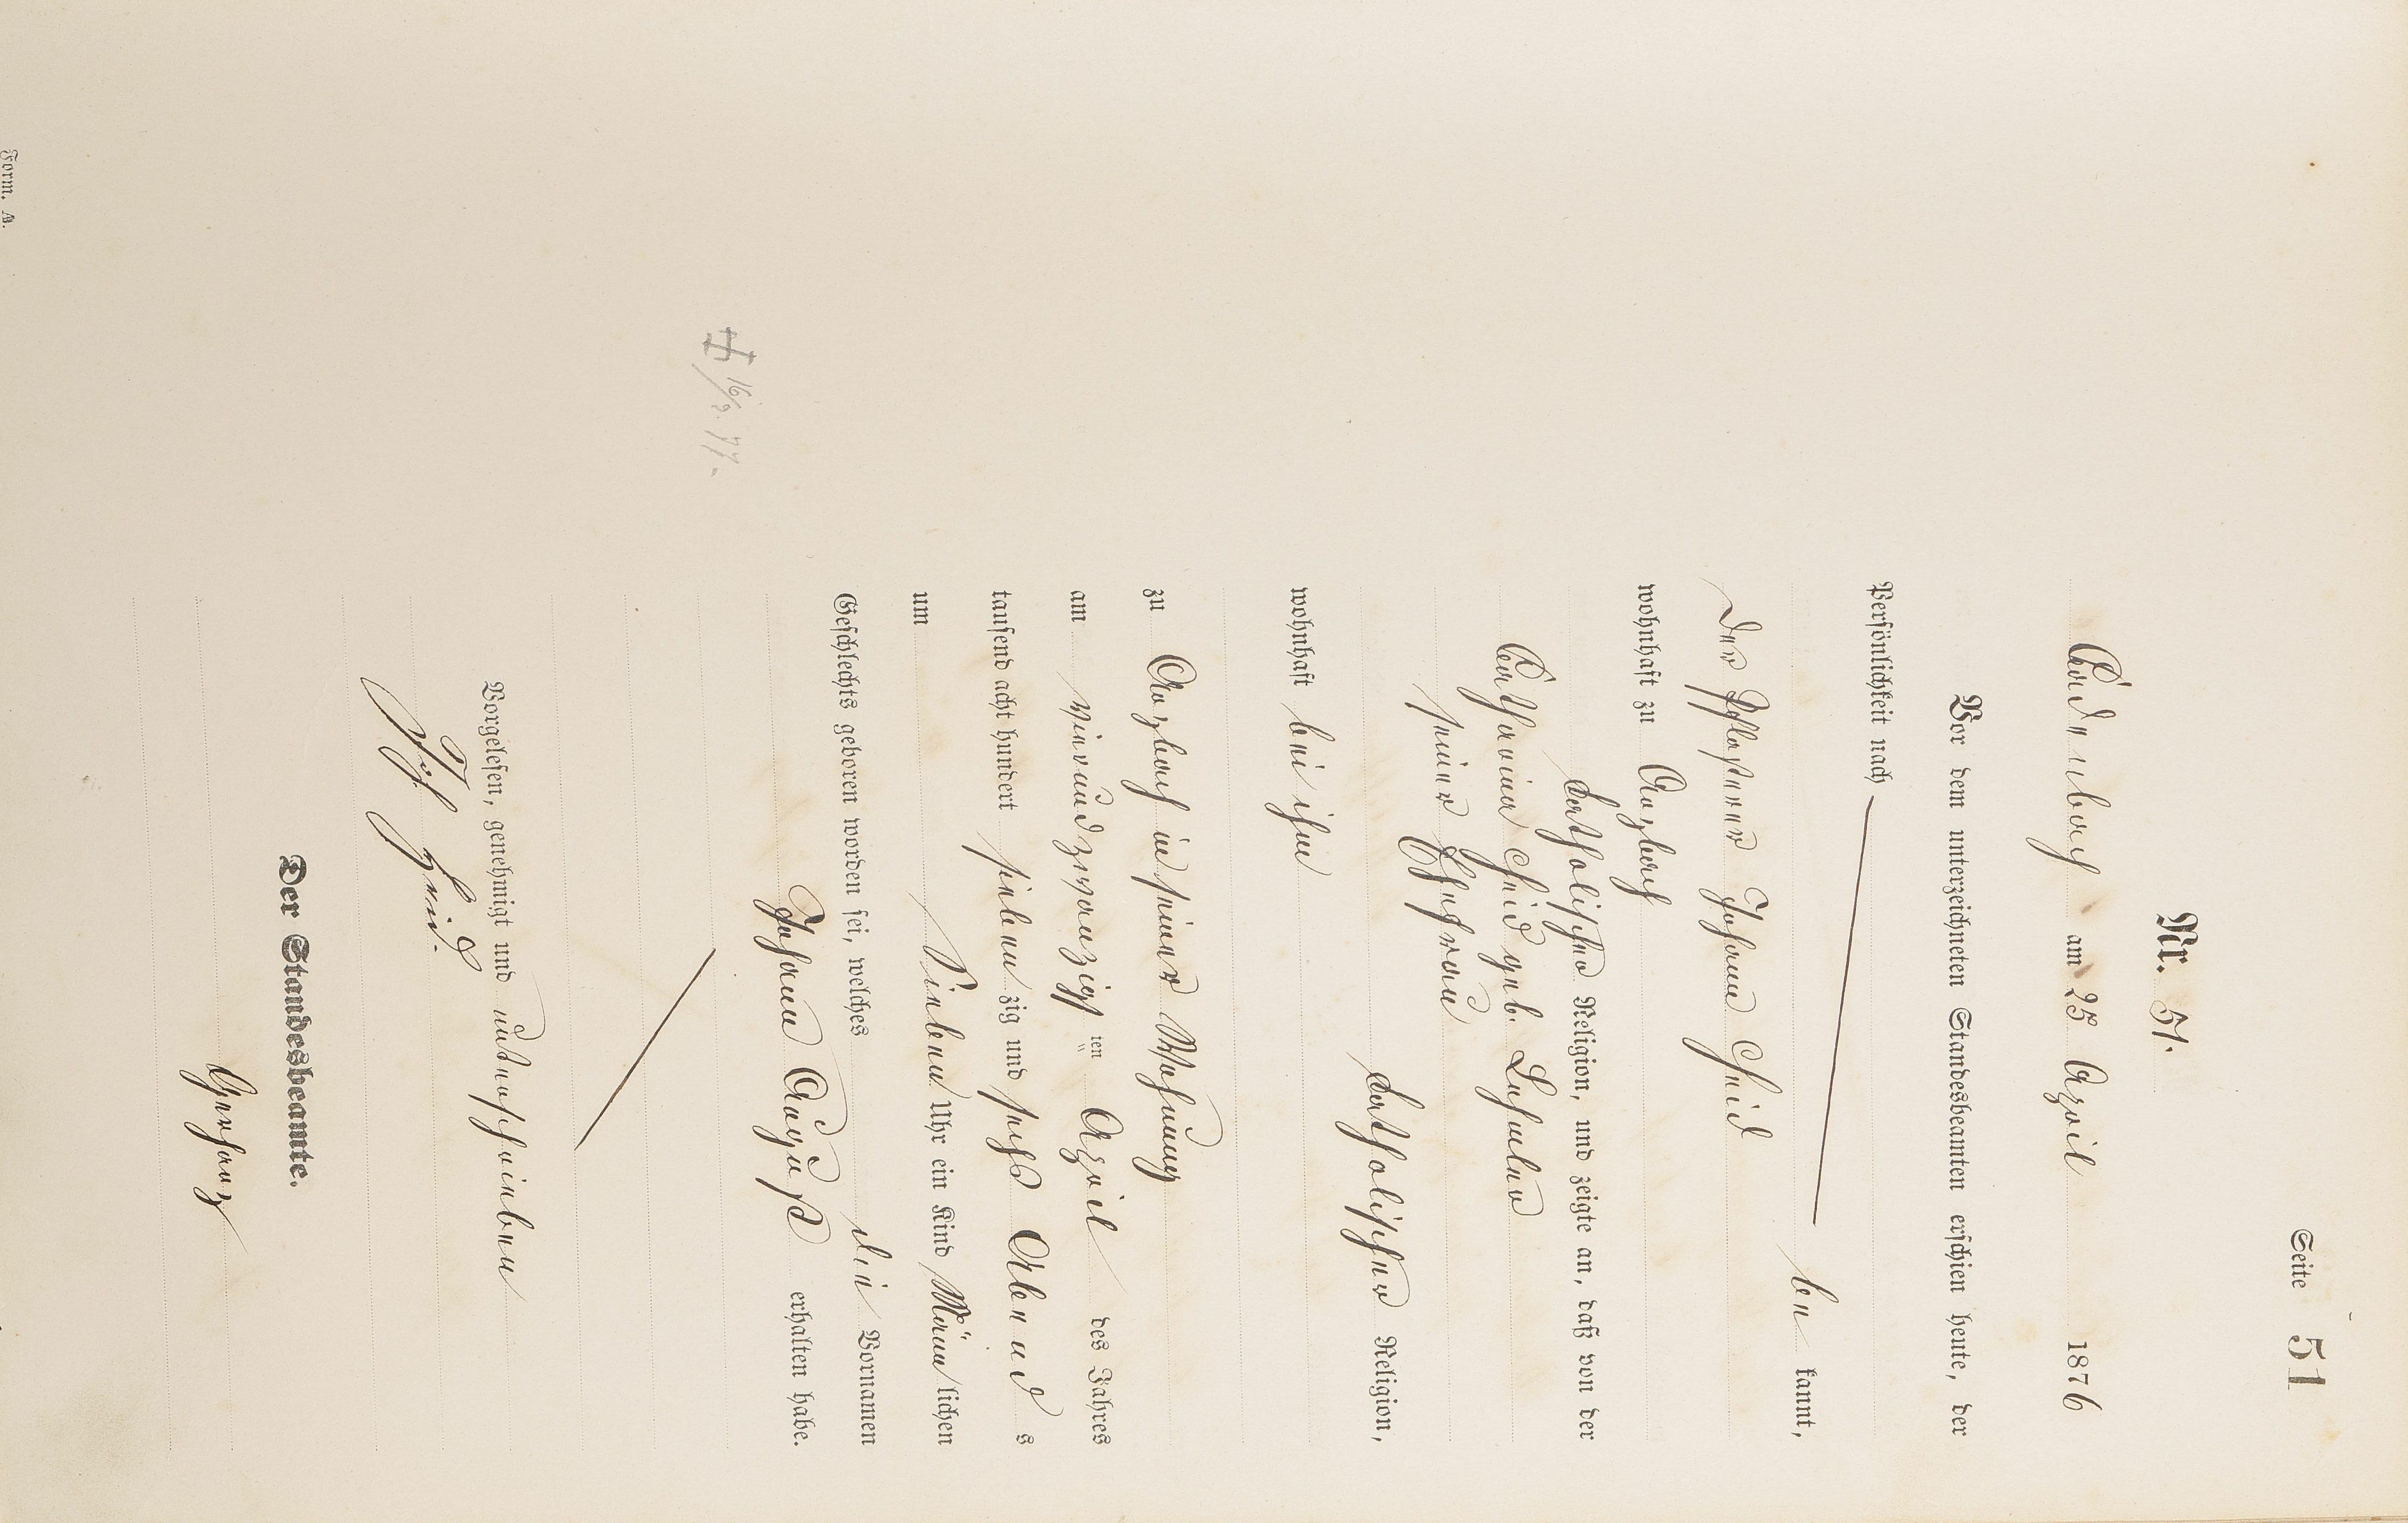 Seite 51
Nr. 51.
Cadenbach am 25 April 1876
Vor dem unterzeichneten Standesbeamten erschien heute, der
Persönlichkeit nach
be kannt,
der Johann
wohnhaft zu Arzbach
katholischer Religion, und zeigte an, daß von der
Catharina geb.
seiner Ehefrau
katholischer Religion,
wohnhaft bei ihm
zu Arzbach in seiner Wohnung
am vierundzwanzigsten ten April des Jahres
tausend acht hundert sieben zig und sechs Abend s
um Sieben Uhr ein Kind Männ lichen
Geschlechts geboren worden sei, welches die Vornamen
Johann August erhalten habe.
† 16/3. 77.
Vorgelesen, genehmigt und unterschrieben
Joh
Der Standesbeamte.
Gerharz
Form. A.